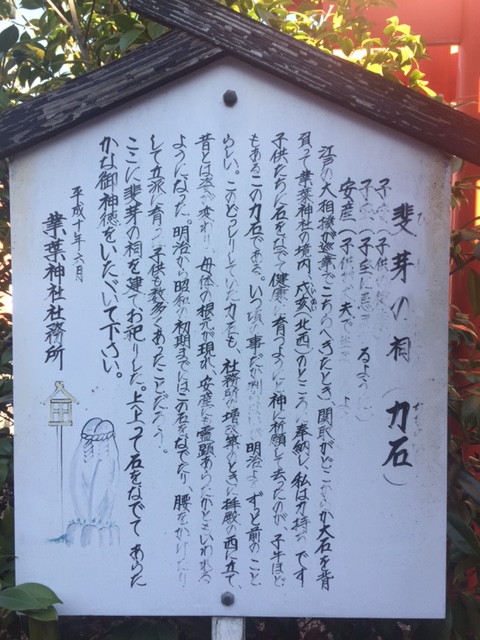 斐芽の祠（力石）
子
子 （子宝に恵 るよう
安産（子供が 夫で
江戸の大相撲が巡業でこちらへきたとき、関取がどこからか大石を背
負って華葉神社の境内、戌亥（北西）のところへ奉納し、私は力持ちです
子供たちに石をなでて健康に育つようにと神に祈願して去ったのが、子牛ほど
もあるこの力石である。いつ頃の事だか判 明治よりずっと前のこと
らしい。このどっしりしていた力石も、社務所の増改築のときに拝殿の西に立て、
昔とは姿が変わり、母体の根元が現れ、安産にも霊顕あらたかともいわれる
ようになった。明治から昭和の初期まではこの石をなでたり、腰をかけたり
して立派に育った子供も数多くあったことだろう。
ここに斐芽の祠を建てお祀りした。上上って石をなでて あらた
かな御神徳をいただいて下さい。
平成十年六月
華葉神社社務所